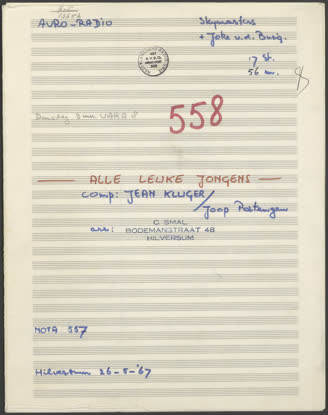 AVRO-RADIO
Skymasters
+ Joke v.d. Burg.
17 St.
56 mu.
558
ALLE LEUKE JONGENS
comp: JEAN KLUGER
/ Joop Portengen
arr:
C. SMAL
BODEMANSTRAAT 48
HILVERSUM
NOTA 557
Hilversum 26-5-'67